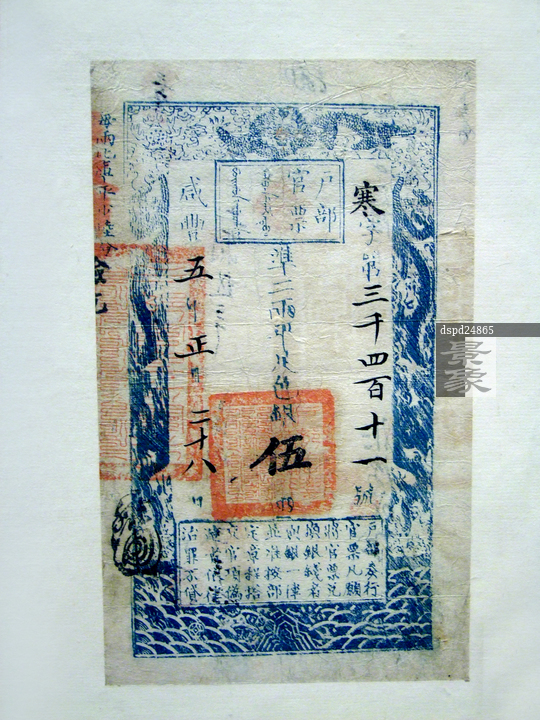 戶部
官票
寒字第三千四百十一號
準二兩平足色銀伍兩
咸豐五年正月二十八日
戶部奏行
官票凡願
將官票兌
換銀錢者
與銀一律
並准按部
定章程搭
交官項偽
造者依律
治罪不貸
dspd24865
景象